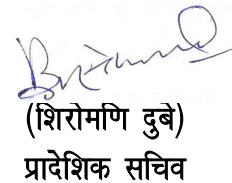 (शिरोमणि दुबे)
प्रादेशिक सचिव